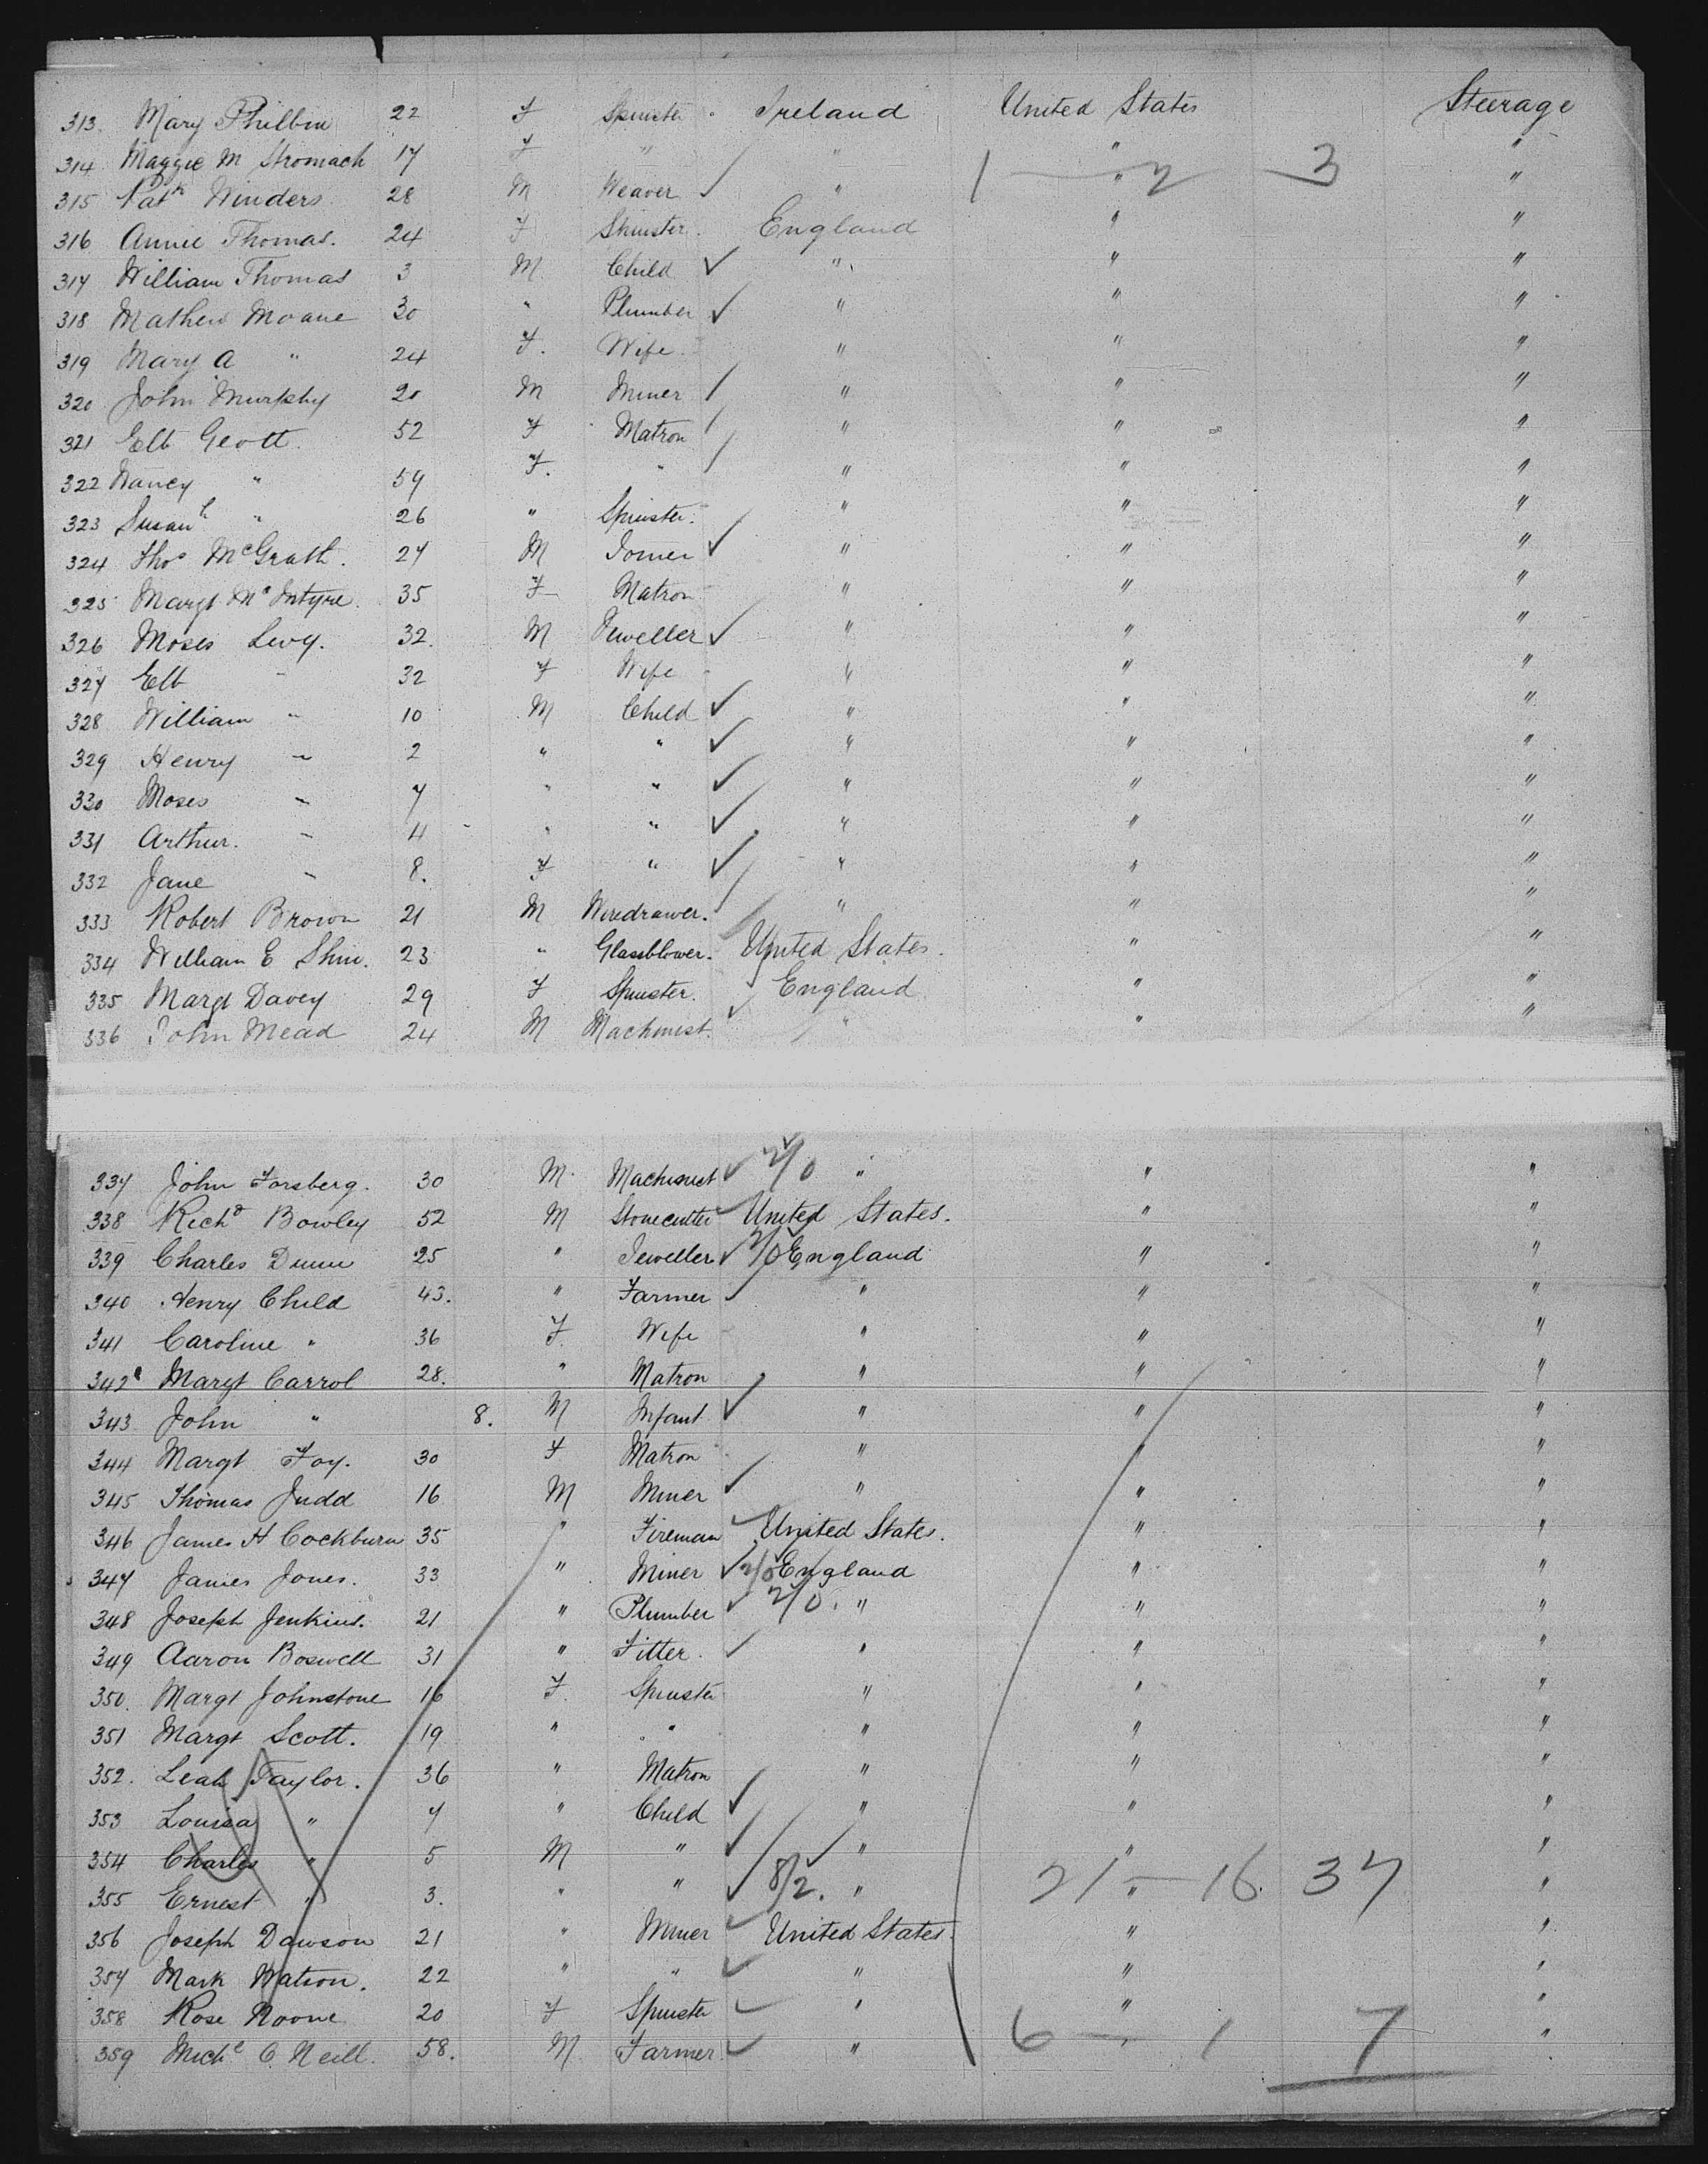 313. Mary Philbin 22 F Spinster " Ireland United States Steerage
314 Maggie M Stromach 17 F " " " "
315 Patk Winders 28 M Weaver ✓ " 1 — " 2 3 "
316 Annie Thomas. 24 F Spinster. England " "
317 William Thomas 3 M Child ✓ " " "
318 Mathew Moane 30 " Plumber ✓ " " "
319 Mary A " 24 F. Wife " " "
320 John Murphy 20 M Miner " " "
321 Elt Geott. 52 F Matron " " "
322 Nancy " 59 F. " " " "
323 Susanh " 26 " Spinster. " " "
324 Thos McGrath. 27 M Joiner ✓ " " "
325 Margt McIntyre. 35 F Matron " " "
326 Moses Levy. 32. M Jeweller ✓ " " "
327 Elt " 32 F Wife " " "
328 William " 10 M Child ✓ " " "
329 Henry " 2 " " ✓ " " "
330 Moses " 7 " " ✓ " " "
331 Arthur. " 4 " " ✓ " " "
332 Jane " 8. F " ✓ " " "
333 Robert Brown 21 M Wiredrawer. " " "
334 William E Shin. 23 " Glassblower. United States. " "
335 Margt Davey 29 F Spinster. England " "
336 John Mead 24 M Machinist. ✓ " " "
337 John Forsberg. 30 M. Machinist ✓ 2/0 " " "
338 Richd Bowley 52 M Stonecutter United States. " "
339 Charles Dunn 25 " Jeweller ✓ 2/0 England " "
340 Henry Child 43. " Farmer ✓ " " "
341 Caroline " 36 F. Wife " " "
342 Margt Carrol 28. " Matron " " "
343 John " 8. M Infant ✓ " " "
344 Margt Foy. 30 F Matron " " "
345 Thomas Judd 16 M Miner ✓ " " "
346 James H Cockburn 35 " Fireman United States. " "
347 James Jones. 33 " Miner ✓ 2/0 England " "
348 Joseph Jenkins. 21 " Plumber ✓ 2/0. " " "
349 Aaron Boswell 31 " Fitter. ✓ " " "
350. Margt Johnstone 16 F. Spinster " " "
351 Margt Scott. 19 " " " " "
352. Leah Taylor. 36 " Matron " " "
353 Louisa " 7 " Child ✓ " " "
354 Charles " 5 M " ✓ " " "
355 Ernest " 3. " " ✓ 8/2. " 21 — " 16. 37 "
356 Joseph Dawson 21 " Miner ✓ United States. " "
357 Mark Watson. 22 " " ✓ " " "
358 Rose Noone 20 F Spinster ✓ " " "
359 Michl O. Neill. 58. M Farmer. ✓ " 6 — " 1 7 "